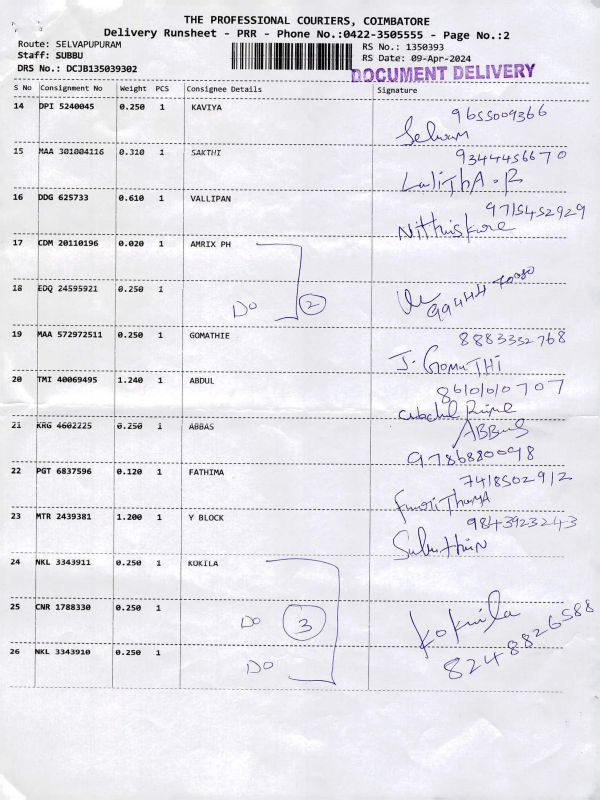 THE PROFESSIONAL COURIERS, COIMBATORE
Delivery Runsheet - PRR - Phone No.:0422-3505555 - Page No.:2
Route: SELVAPUPURAM
RS No.: 1350393
Staff: SUBBU
RS Date: 09-Apr-2024
DRS No.: DCJB135039302
DOCUMENT DELIVERY
S No Consignment No Weight PCS Consignee Details Signature
14 DPI 5240045 0.250 1 KAVIYA 9655009366
Selvam
15 MAA 301004116 0.310 1 SAKTHI 9344456670
LalithA.R
16 DDG 625733 0.610 1 VALLIPAN 9715452929
17 CDM 20110196 0.020 1 AMRIX PH
18 EDQ 24595921 0.250 1 Do 2
19 MAA 572972511 0.250 1 GOMATHIE 8883332768
J. GomaTHI
20 TMI 40069495 1.240 1 ABDUL 8610100707
21 KRG 4602225 0.250 1 ABBAS ABBas
9786880098
22 PGT 6837596 0.120 1 FATHIMA 7418502912
23 MTR 2439381 1.200 1 Y BLOCK 9843923243
24 NKL 3343911 0.250 1 KOKILA
25 CNR 1788330 0.250 1 Do 3 Kokila
26 NKL 3343910 0.250 1 Do 8248826588